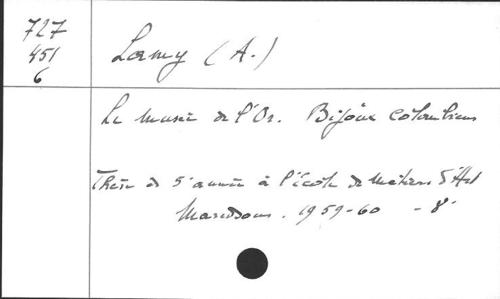 727
451
6
Lamy (A.)
Le Musée de l'Or. Bijoux colombiens
Thèse de 5e année à l'école de Métiers d'Art
Maredsous. 1959-60 - 8°